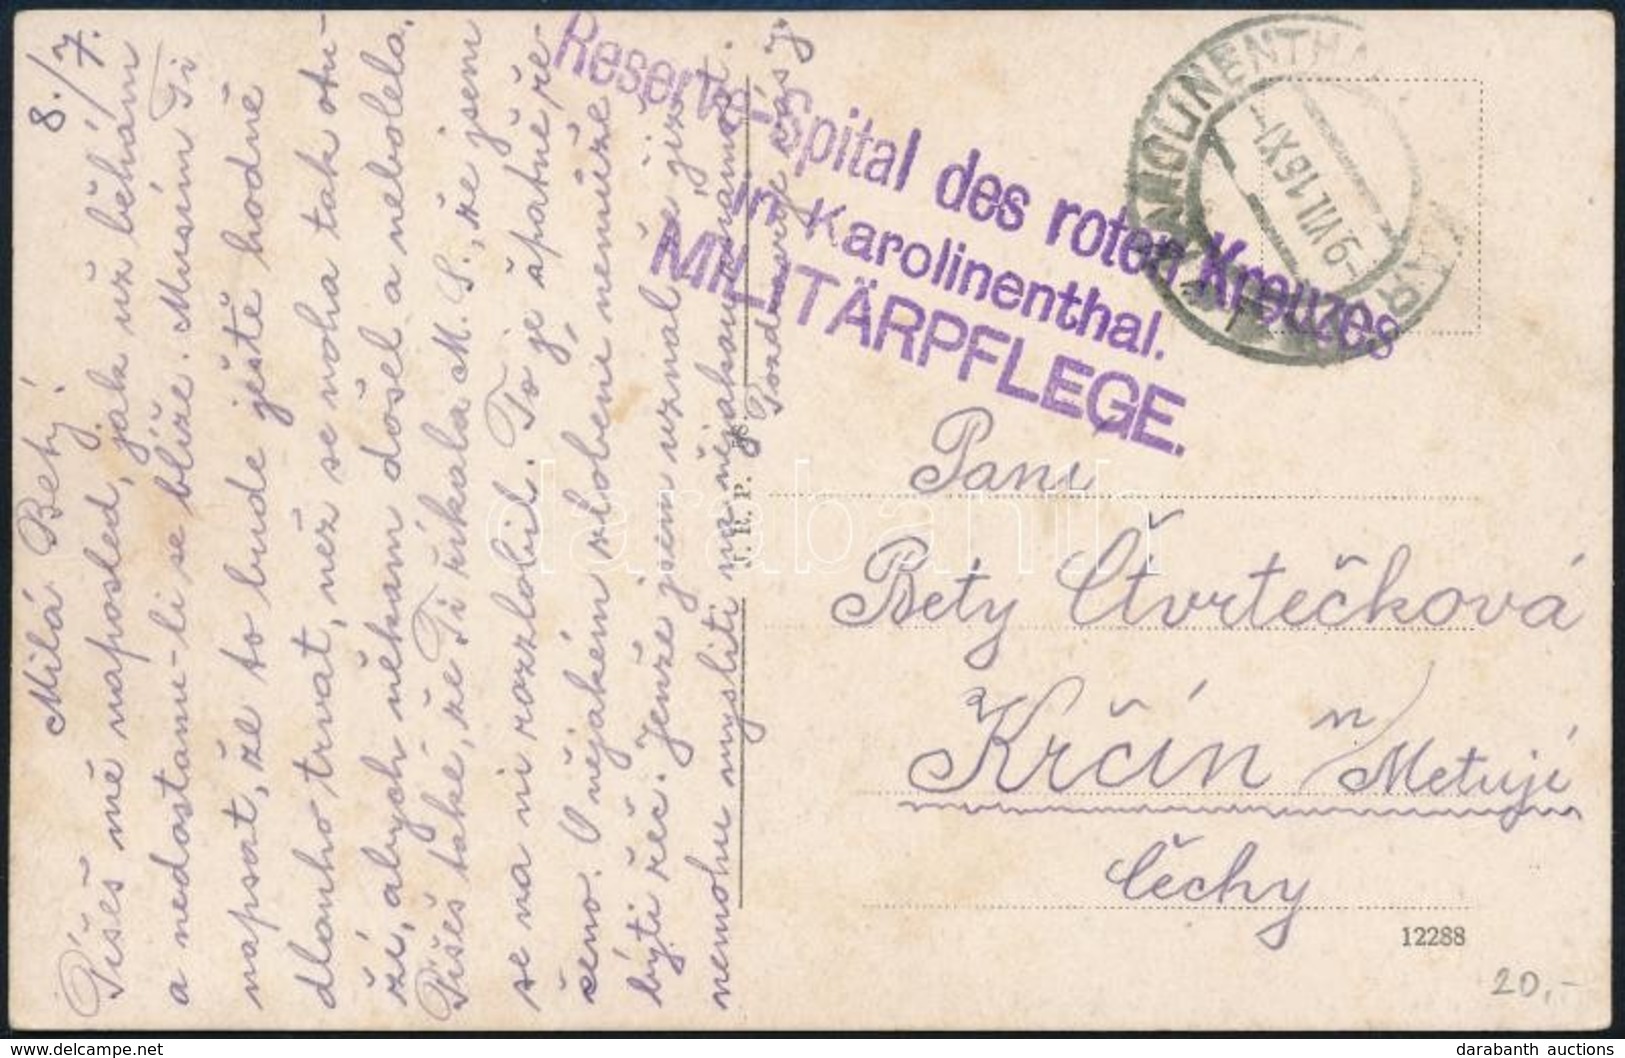 8./7.
Milá Bety!
Píšeš mě naposled, jak už běhám
a nedostanu-li se blíže. Musím Ti
napsat, že to bude ještě hodně
dlouho trvat, než se noha tak otu-
ží, abych někam došel a nebolela.
Píšeš také, že Ti říkala M. S., že jsem
se na ni rozzlobil. To je špatně ře-
čeno. O nějakém zlobení nemůže
býti řeč. Jenže jsem uznal, že
nemohu mysliti na nějakou známost.
Pozdravuje vás
Reserve-Spital des roten Kreuzes
in Karolinenthal.
MILITÄRPFLEGE.
KAROLINENTHAL
-9.VII.15.XI-
Paní
Bety Čtvrtečková
Krčín n/Metují
Čechy
J. R. P.
12288
20,-
darabanth
delcampe.net
darabanth auctions